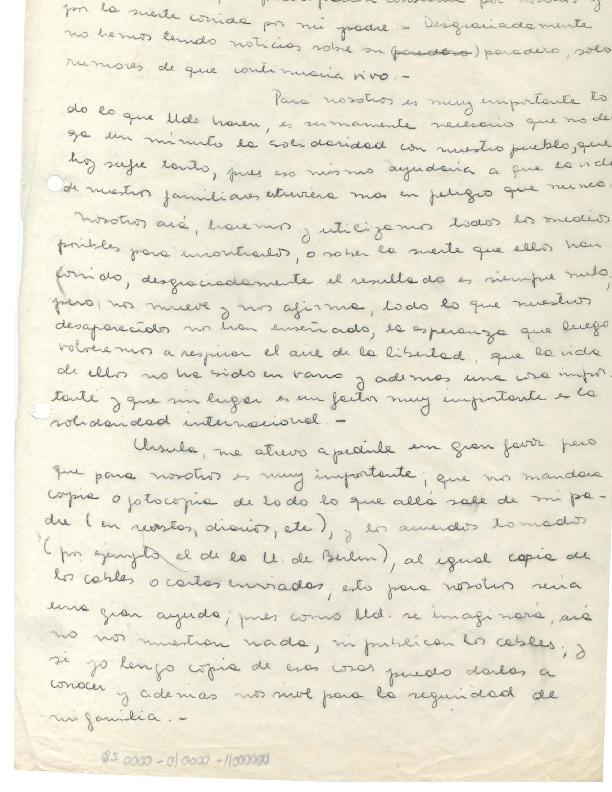 por la suerte corrida por mi padre. - Desgraciadamente
no hemos tenido noticias sobre su (paradero) paradero, solo
rumores de que continuaria vivo. -
Para nosotros es muy importante to
do lo que Uds hacen, es sumamente necesario que no de
ga un minuto la solidaridad con nuestro pueblo, que
hoy sufre tanto, pues eso mismo ayudaria a que la vida
de nuestros familiares estuviera mas en peligro que nunca.
Nosotros acá, hacemos y utilizamos todos los medios
posibles para encontrarlos, o saber la suerte que ellos han
corrido, desgraciadamente el resultado es siempre nulo,
pero, nos mueve y nos afirma, todo lo que nuestros
desaparecidos no han enseñado, la esperanza que luego
volveremos a respirar el aire de la libertad, que la vida
de ellos no ha sido en vano y ademas una cosa impor-
tante y que sin lugar es un factor muy importante es la
solidaridad internacional. -
Ursula, me atrevo a pedirle un gran favor pero
que para nosotros es muy importante; que nos mandara
copia o fotocopia de todo lo que allá sale de mi pa-
dre (en revistas, diarios, etc), y los acuerdos tomados
(por ejemplo el de la U. de Berlin), al igual copia de
los cables o cartas enviadas, esto para nosotros seria
una gran ayuda; pues como Ud. se imaginará, acá
no nos muestran nada, ni publican los cables; y
si yo tengo copia de esas cosas puedo darlas a
conocer y ademas nos sirve para la seguridad de
mi familia. -